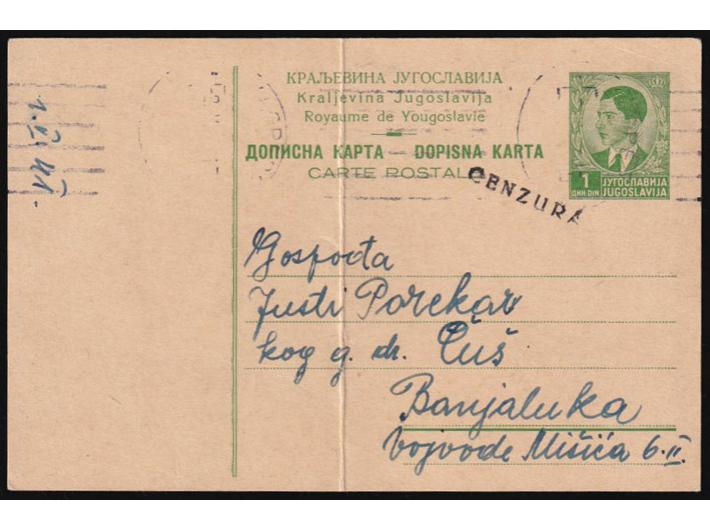 КРАЉЕВИНА ЈУГОСЛАВИЈА
Kraljevina Jugoslavija
Royaume de Yougoslavie
ДОПИСНА КАРТА — DOPISNA KARTA
CARTE POSTALE
1
ДИН. DIN
ЈУГОСЛАВИЈА
JUGOSLAVIJA
CENZURA
Gospođa
Justi Porekar
kog g. dr. Čuš
Banjaluka
Vojvode Mišića 6.II.